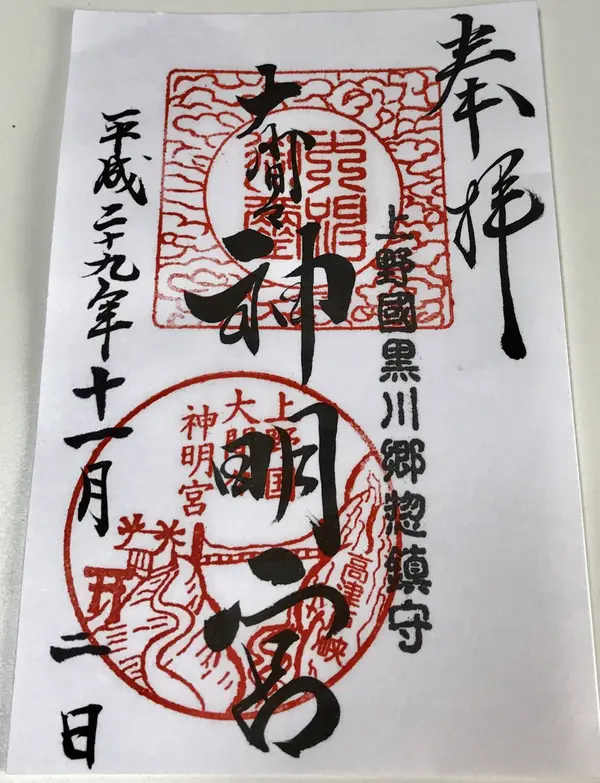 奉拝
上野國黒川郷惣鎮守
大間々神明宮
上野国
大間々
神明宮
高津戸峡
平成二十九年十一月二日